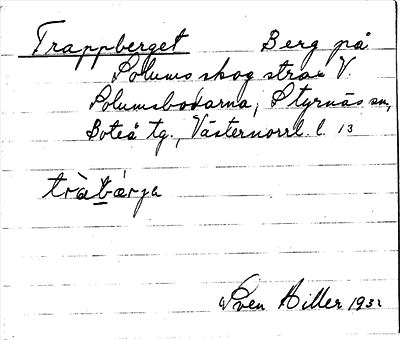 Trappberget Berg på
Solums skog strax V.
Solumsbodarna, Styrnäs sn,
Boteå tg., Västernorrl. l. 13
tràbǽrjа
Sven Hiller 1932